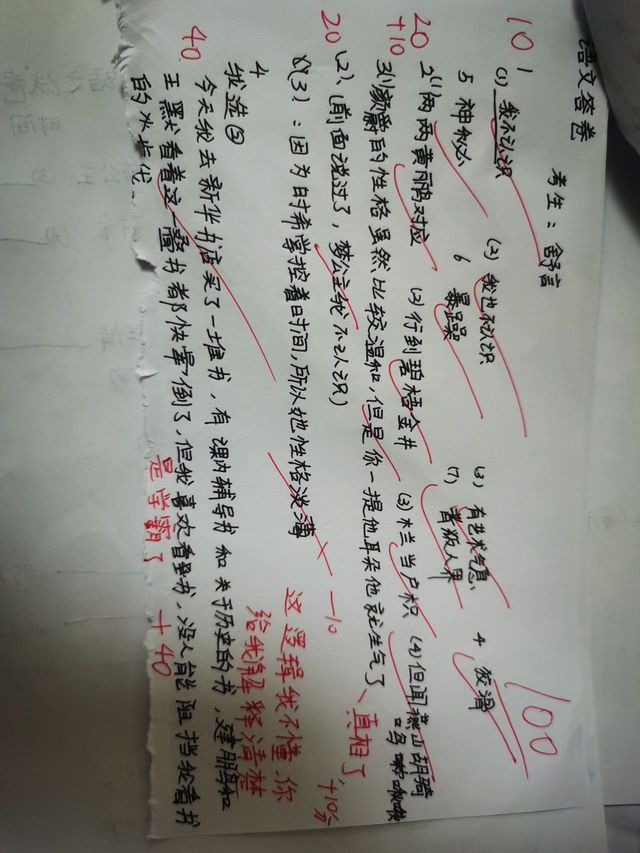 语文答卷
考生：舍予言
100
10
1
(1) 我不认识 (2) 我也不认识 (3) 有艺术气息 4 狡滑
5 神秘 6 暴躁 (7) 晋级人界
20
+10
2(1)两两黄丽鸟对应 (2)行到碧梧金井 (3)木兰当户织 (4)但闻燕山胡骑鸣啾啾
3(1)颜爵的性格虽然比较温和，但是你一提他耳朵他就生气了、真相了 +10分
20
(2)、(前面说过了，梦公主我不认识)
(3)：因为时希掌控着时间，所以她性格淡薄 × -10
这逻辑我不懂，你
给我解释清楚
4
我选④
40
今天我去新华书店买了一堆书，有课内辅导书和关于历史的书，文建朋和
王默光看着这一叠书都快晕倒了，但我喜欢看书，没人能阻挡我看书
的水步伐
是学霸了 +40